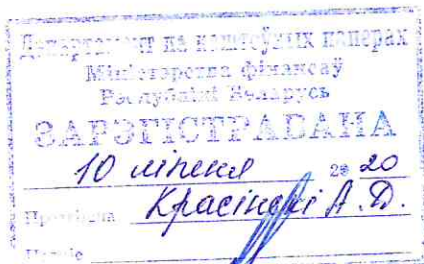 Дэпартамент па каштоўных паперах
Міністэрства фінансаў
Рэспублікі Беларусь
ЗАРЭГІСТРАВАНА
10 ліпеня 2020
Красінскі А.Д.